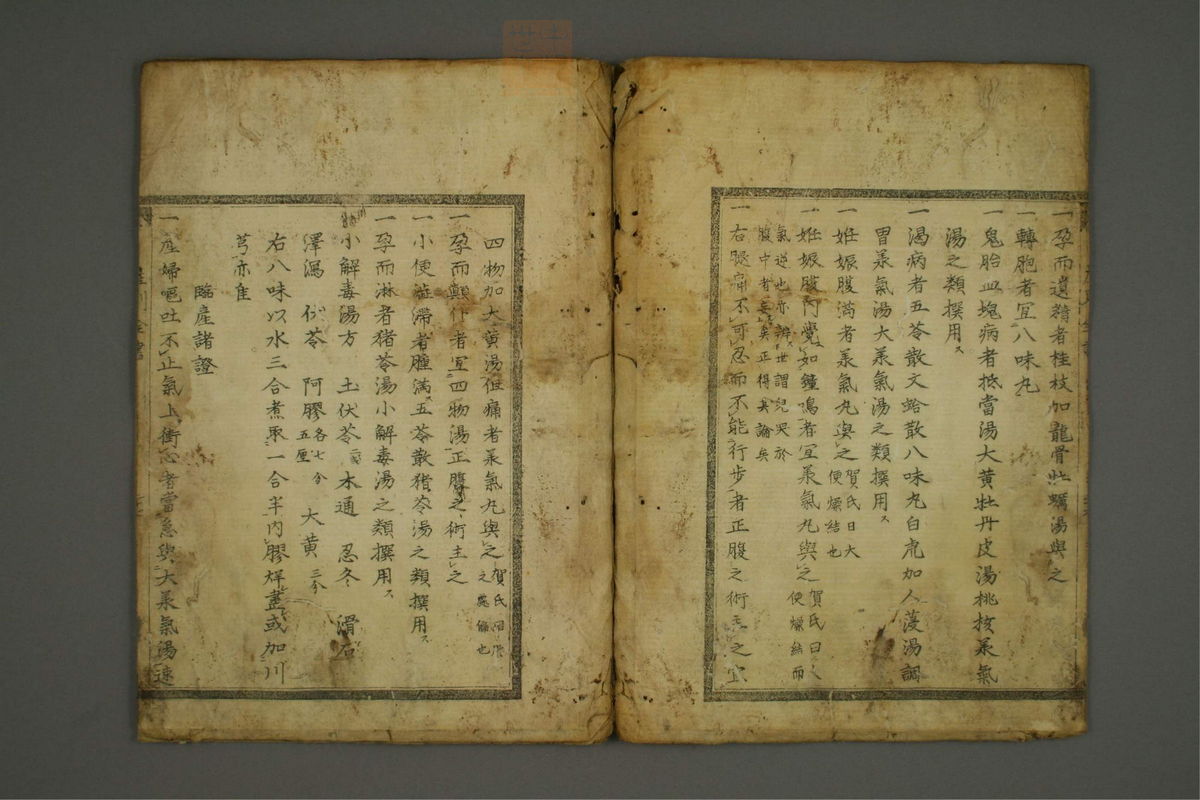 一孕而遺精者桂枝加龍骨牡蠣湯與之
一轉胞者宜八味丸
一鬼胎血塊病者抵當湯大黄牡丹皮湯桃核承氣
湯之類撰用ス
一渇病者五苓散文蛤散八味丸白虎加人薓湯調
胃承氣湯大承氣湯之類撰用ス
一妊娠腹満者承氣丸與之賀氏曰大
便燥結也
一妊娠腹内覺如鐘鳴者宜承氣丸與之賀氏曰
便燥結而
氣逆也亦辨世謂兒哭於
腹中者妄矣正得其論矣
一右腿痛不可忍而不能行歩者正腹之術主之宜
四物加大黄湯但痛者承氣丸與之賀氏
之也
一孕而顛仆者宜四物湯正腹之術主之
一小便澁滞者腫満五苓散猪苓湯之類撰用ス
一孕而淋者猪苓湯小解毒湯之類撰用ス
小解毒湯方 土伏苓 木通 忍冬 滑石
澤瀉 伏苓 阿膠各七分
五厘 大黄三分
右八味以水三合煮取一合半内膠烊盡或加川
芎亦佳
臨産諸證
一産婦嘔吐不止氣上衝心者當急與大承氣湯速